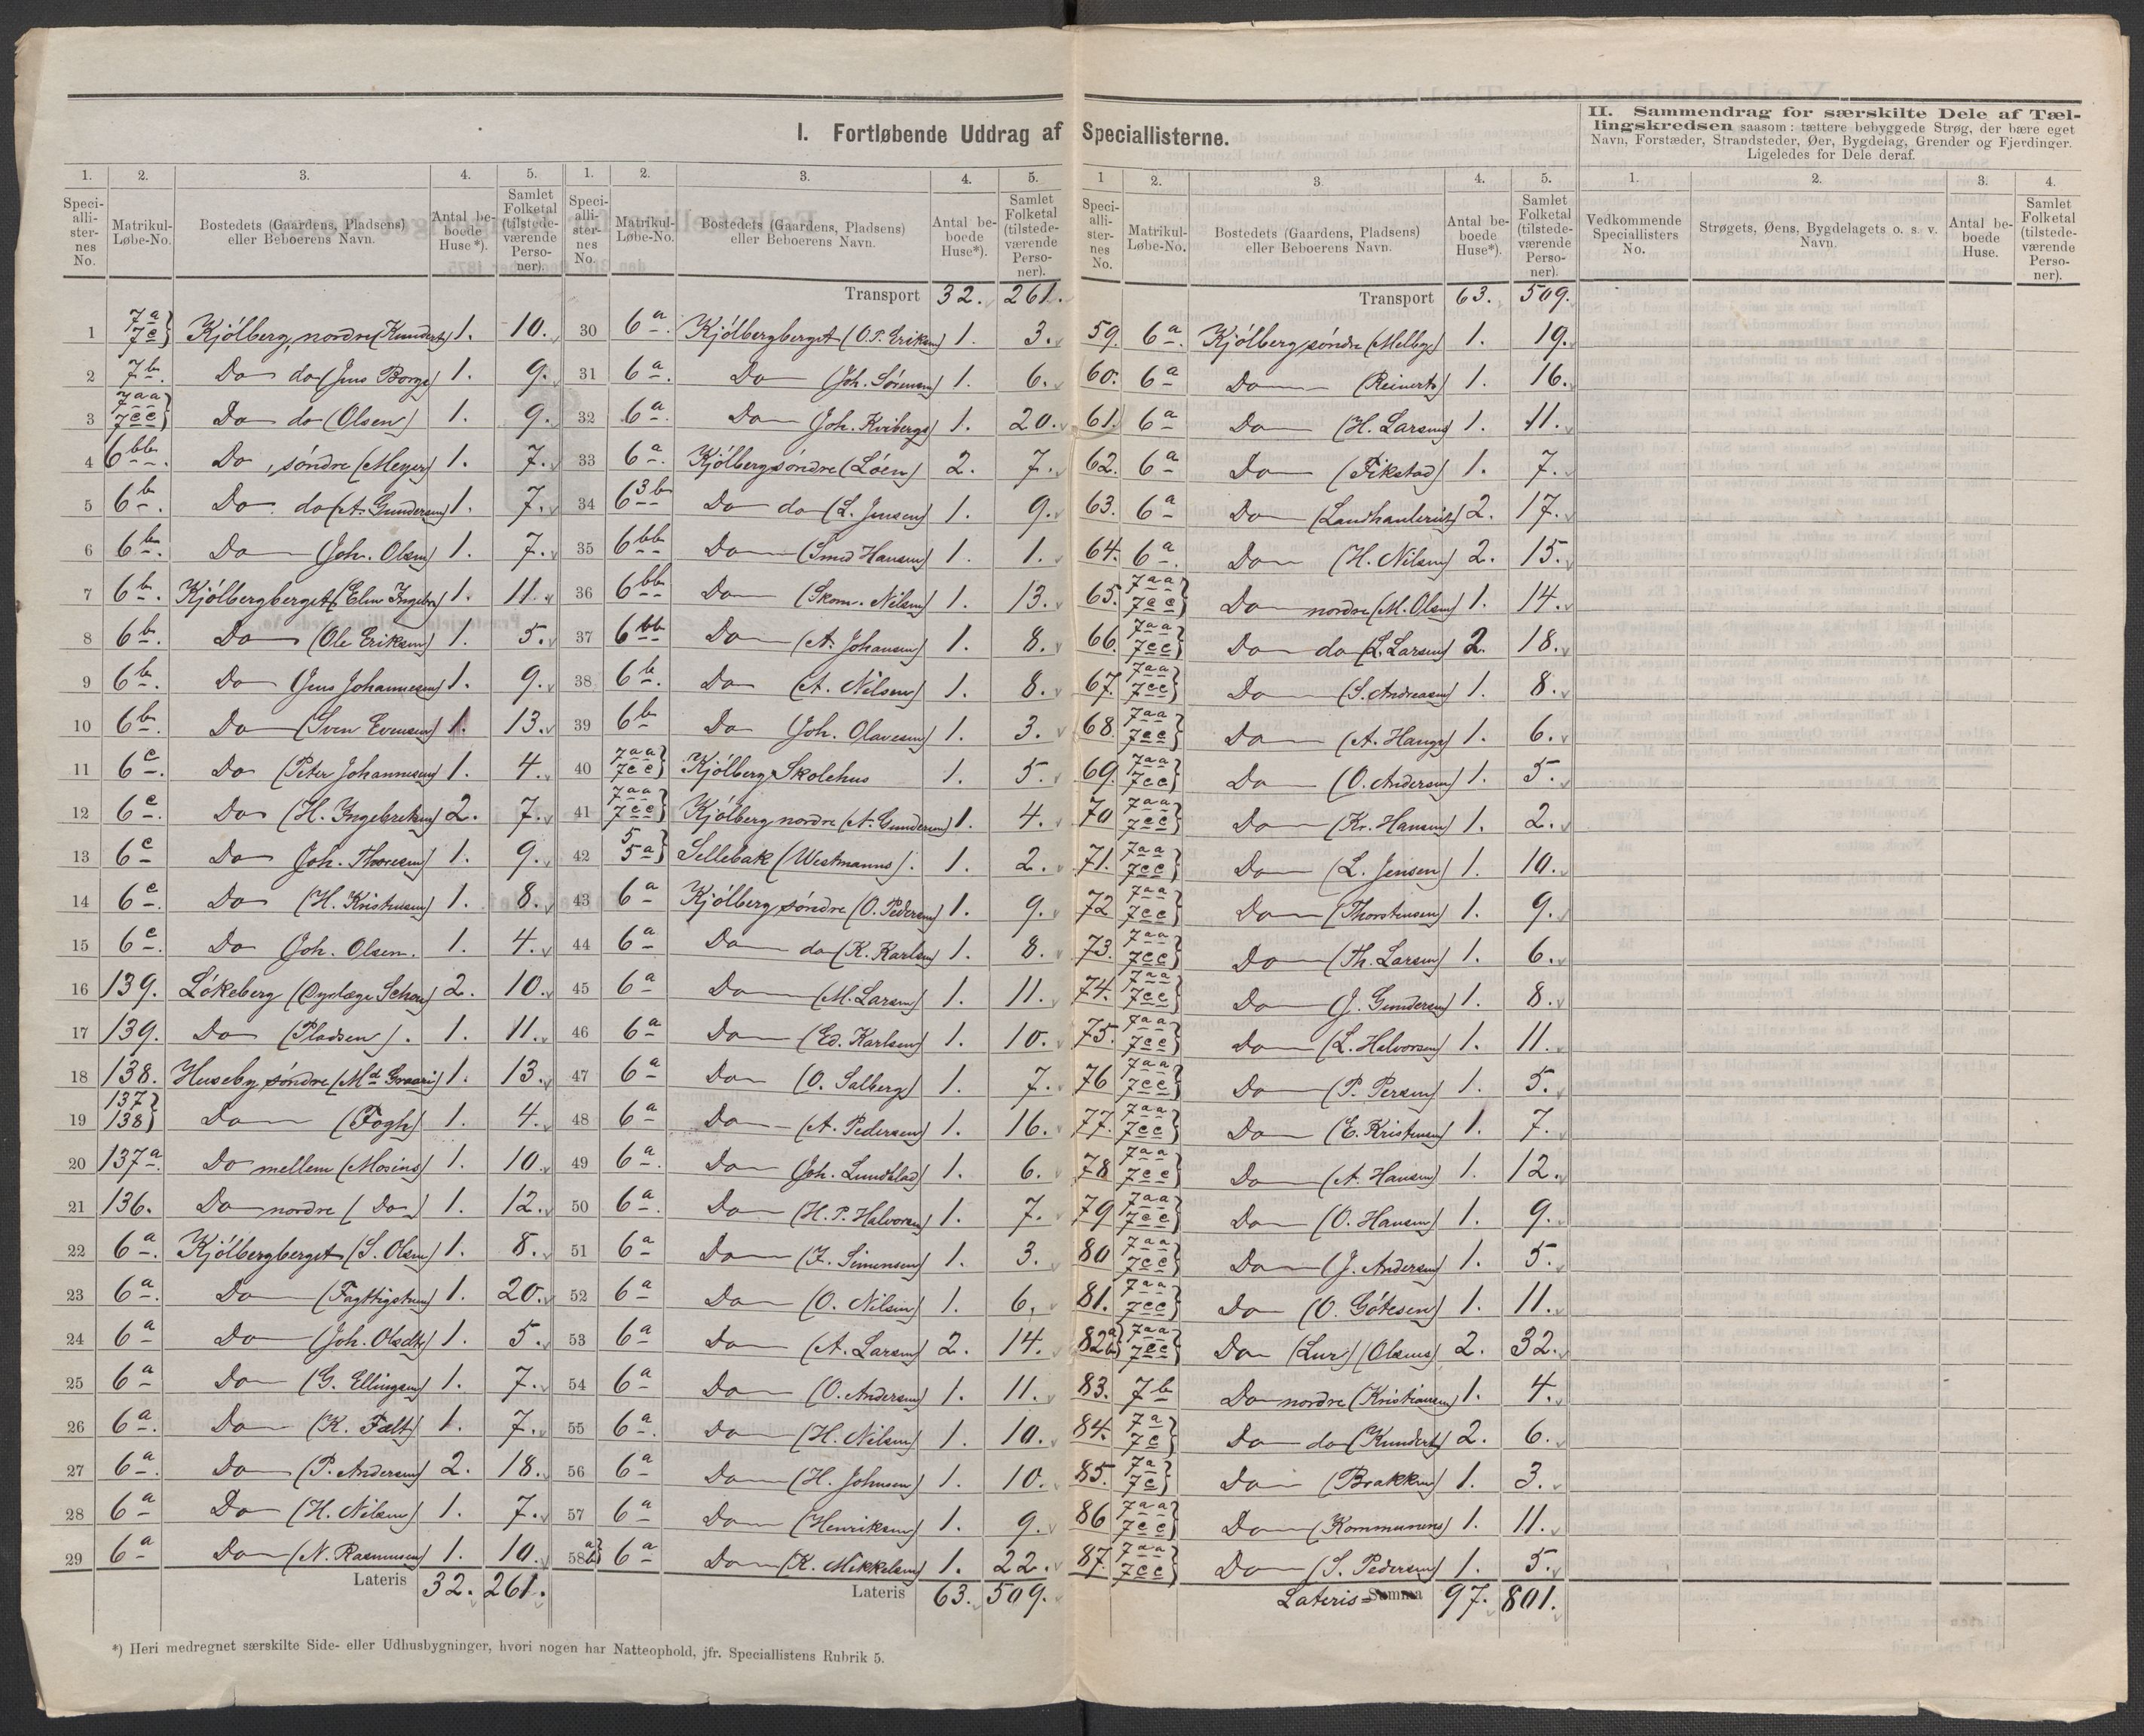 I. Fortløbende Uddrag af Speciallisterne.
II. Sammendrag for særskilte Dele af Tællingskredsen saasom: tættere bebyggede Strøg, der bære eget
Navn, Forstæder, Strandsteder, Øer, Bygdelag, Grender og Fjerdinger.
Ligeledes for Dele deraf.
1. 2. 3. 4. 5.
Speciallisternes No. Matrikul-Løbe-No. Bostedets (Gaardens, Pladsens) eller Beboerens Navn. Antal beboede Huse*). Samlet Folketal (tilstedeværende Personer).
1 7a 7c} Kjølberg, nordre (Kunderts) 1. 10.
2 7b. Do do (Jens Borge) 1. 9.
3 7aa 7cc} Do do (Olsen) 1. 9.
4 6bb. Do, søndre (Meyer) 1. 7.
5 6b. Do do (A. Gundersen) 1. 7.
6 6b. Do (Joh. Olsen) 1. 7.
7 6b. Kjølbergberget (Elen Ingebr) 1. 11.
8 6b. Do (Ole Eriksen) 1. 5.
9 6b. Do (Jens Johannesen) 1. 9.
10 6b. Do (Sven Evensen) 1. 13.
11 6c. Do (Peter Johannesen) 1. 4.
12 6c. Do (H. Ingebretsen) 2. 7.
13 6c Do (Joh. Thoresen) 1. 9.
14 6c. Do (H. Kristensen) 1. 8.
15 6c. Do (Joh. Olsen. 1. 4.
16 139. Løkeberg (Oyslæge Schou) 2. 10.
17 139. Do (Pladsen). 1. 11.
18 138. Huseby søndre (Md Graari) 1. 13.
19 137 138} Do (Fogh) 1. 4.
20 137a. Do mellem (Mosins) 1. 10.
21 136. Do nordre (Do) 1. 12.
22 6a. Kjølbergberget (S. Olsen) 1. 8.
23 6a. Do (Fagttigstuen) 1. 20.
24 6a Do (Joh. Olsdtr) 1. 5.
25 6a Do (G. Ellingsen) 1. 7.
26 6a. Do (K. Falt) 1. 7.
27 6a. Do (P. Andersen) 2. 18.
28 6a Do (H. Nilsen) 1. 7.
29 6a Do (N. Rasmussen) 1. 10.
Lateris 32. 261.
1. 2. 3. 4. 5.
Speciallisternes No. Matrikul-Løbe-No. Bostedets (Gaardens, Pladsens) eller Beboerens Navn. Antal beboede Huse*). Samlet Folketal (tilstedeværende Personer).
Transport 32. 261.
30 6a. Kjølbergberget (O. P. Eriksen) 1. 3.
31 6a. Do (Joh. Sørensen) 1. 6.
32 6a. Do (Joh. Kvibergs) 1. 20.
33 6a. Kjølberg søndre (Løen) 2. 7.
34 63b Do do (L. Jensen) 1. 9.
35 6bb Do (Smed Hansen) 1. 1.
36 6bb Do (Skom. Nilsen) 1. 13.
37 6bb Do (A. Johansen) 1. 8.
38 6b. Do (A. Nilsen) 1. 8.
39 6b Do (Joh. Olavesen) 1. 3.
40 7aa 7cc} Kjølberg Skolehus 1. 5.
41 7aa 7cc} Kjølberg nordre (A. Gundersen) 1. 4.
42 5 5a} Sellebak (Westmanns). 1. 2.
43 6a Kjølberg søndre (O. Pedersen) 1. 9.
44 6a Do do (K. Karlsen) 1. 8.
45 6a Do (M. Larsen) 1. 11.
46 6a Do (Ed. Karlsen) 1. 10.
47 6a Do (O. Salberg) 1. 7.
48 6a Do (A. Pedersen) 1. 16.
49 6a. Do (Joh. Lundblad) 1. 6.
50 6a. Do (H. P. Halvorsen) 1. 7.
51 6a Do (F. Simensen) 1. 3.
52 6a Do (O. Nilsen) 1. 6.
53 6a Do (A. Larsen) 2. 14.
54 6a Do (O. Andersen) 1. 11.
55 6a. Do (H. Nilsen) 1. 10.
56 6a Do (H. Johnsen) 1. 10.
57 6a Do (Henriksen) 1. 9.
58 a b} 6a Do (K. Mikkelsen) 1. 22.
Lateris 63. 509.
1 2. 3. 4. 5.
Speciallisternes No. Matrikul-Løbe-No. Bostedets (Gaardens, Pladsens) eller Beboerens Navn. Antal beboede Huse*). Samlet Folketal (tilstedeværende Personer).
Transport 63. 509.
59. 6a. Kjølberg, søndre (Melby) 1. 19.
60. 6a Do (Reinerts) 1. 16.
61. 6a Do (H. Larsens) 1. 11.
62. 6a Do (Fikstad) 1. 7.
63. 6a Do (Landhanleriet) 2. 17.
64. 6a. Do (H. Nilsen) 2. 15.
65. 7aa 7cc} Do nordre (M. Olsen) 1. 14.
66. 7aa 7cc} Do do (L. Larsen) 2. 18.
67. 7aa 7cc} Do (S. Andreasen) 1. 8.
68. 7aa 7cc} Do (A. Hauge) 1. 6.
69. 7aa 7cc} Do (O. Andersen) 1. 5.
70 7aa 7cc} Do (Kr. Hansen) 1. 2.
71. 7aa 7cc} Do (L. Jensen) 1. 10.
72 7aa 7cc} Do (Thorstensen) 1. 9.
73. 7aa 7cc} Do (Th. Larsen) 1. 6.
74. 7aa 7cc} Do (J. Gundersen) 1. 8.
75. 7aa 7cc} Do (L. Halvorsen) 1. 11.
76 7aa 7cc} Do (P. Persen) 1. 5.
77. 7aa 7cc} Do (E. Kristensen) 1. 7.
78 7aa 7cc} Do (A. Hansen) 1. 12.
79 7aa 7cc} Do (O. Hansen) 1. 9.
80 7aa 7cc} Do (J. Andersen) 1. 5.
81. 7aa 7cc} Do (O. Götesen) 1. 11.
82 a b} 7aa 7cc} Do (Lurs) (Olsens) 2. 32.
83. 7b Do nordre (Kristiansen) 1. 4.
84. 7a 7c} Do do (Kunderts) 2. 6.
85. 7a 7c} Do (Brakken) 1. 3.
86 7aa 7cc} Do (Kommunens) 1. 11.
87. 7aa 7cc} Do (S. Pedersen) 1. 5.
Lateris Summa 97. 801.
1. 2. 3. 4.
Vedkommende Speciallisters No. Strøgets, Øens, Bygdelagets o. s. v. Navn. Antal beboede Huse. Samlet Folketal (tilstedeværende Personer).
*) Heri medregnet særskilte Side- eller Udhusbygninger, hvori nogen har Natteophold, jfr. Speciallistens Rubrik 5.